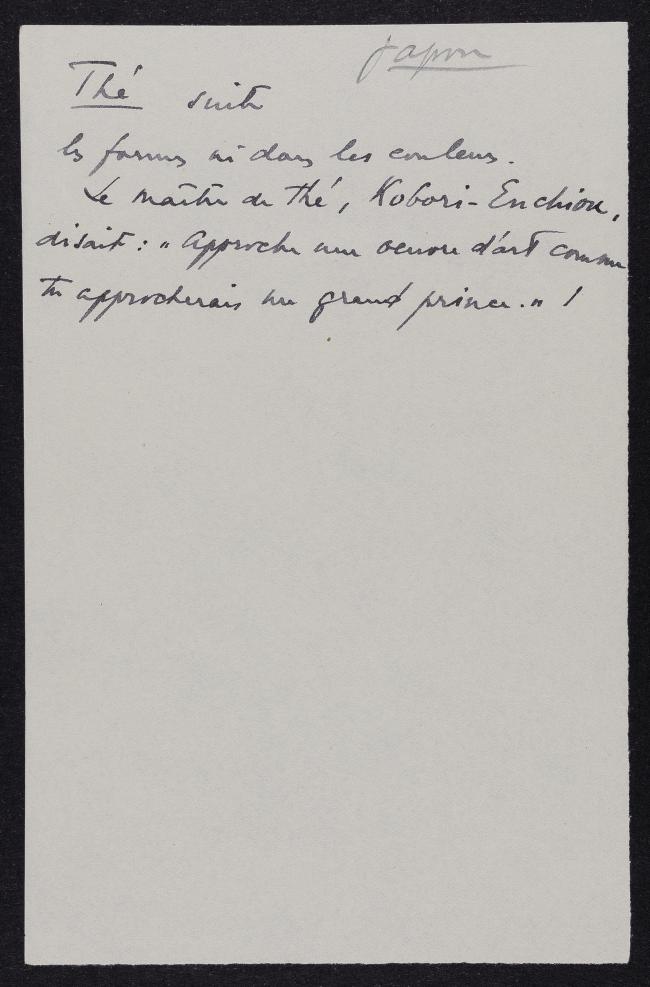 Japon
Thé suite
les formes ni dans les couleurs.
Le maître de thé, Kobori-Enchiou,
disait : " Approche une oeuvre d'art comme
tu approcherais un grand prince. " !